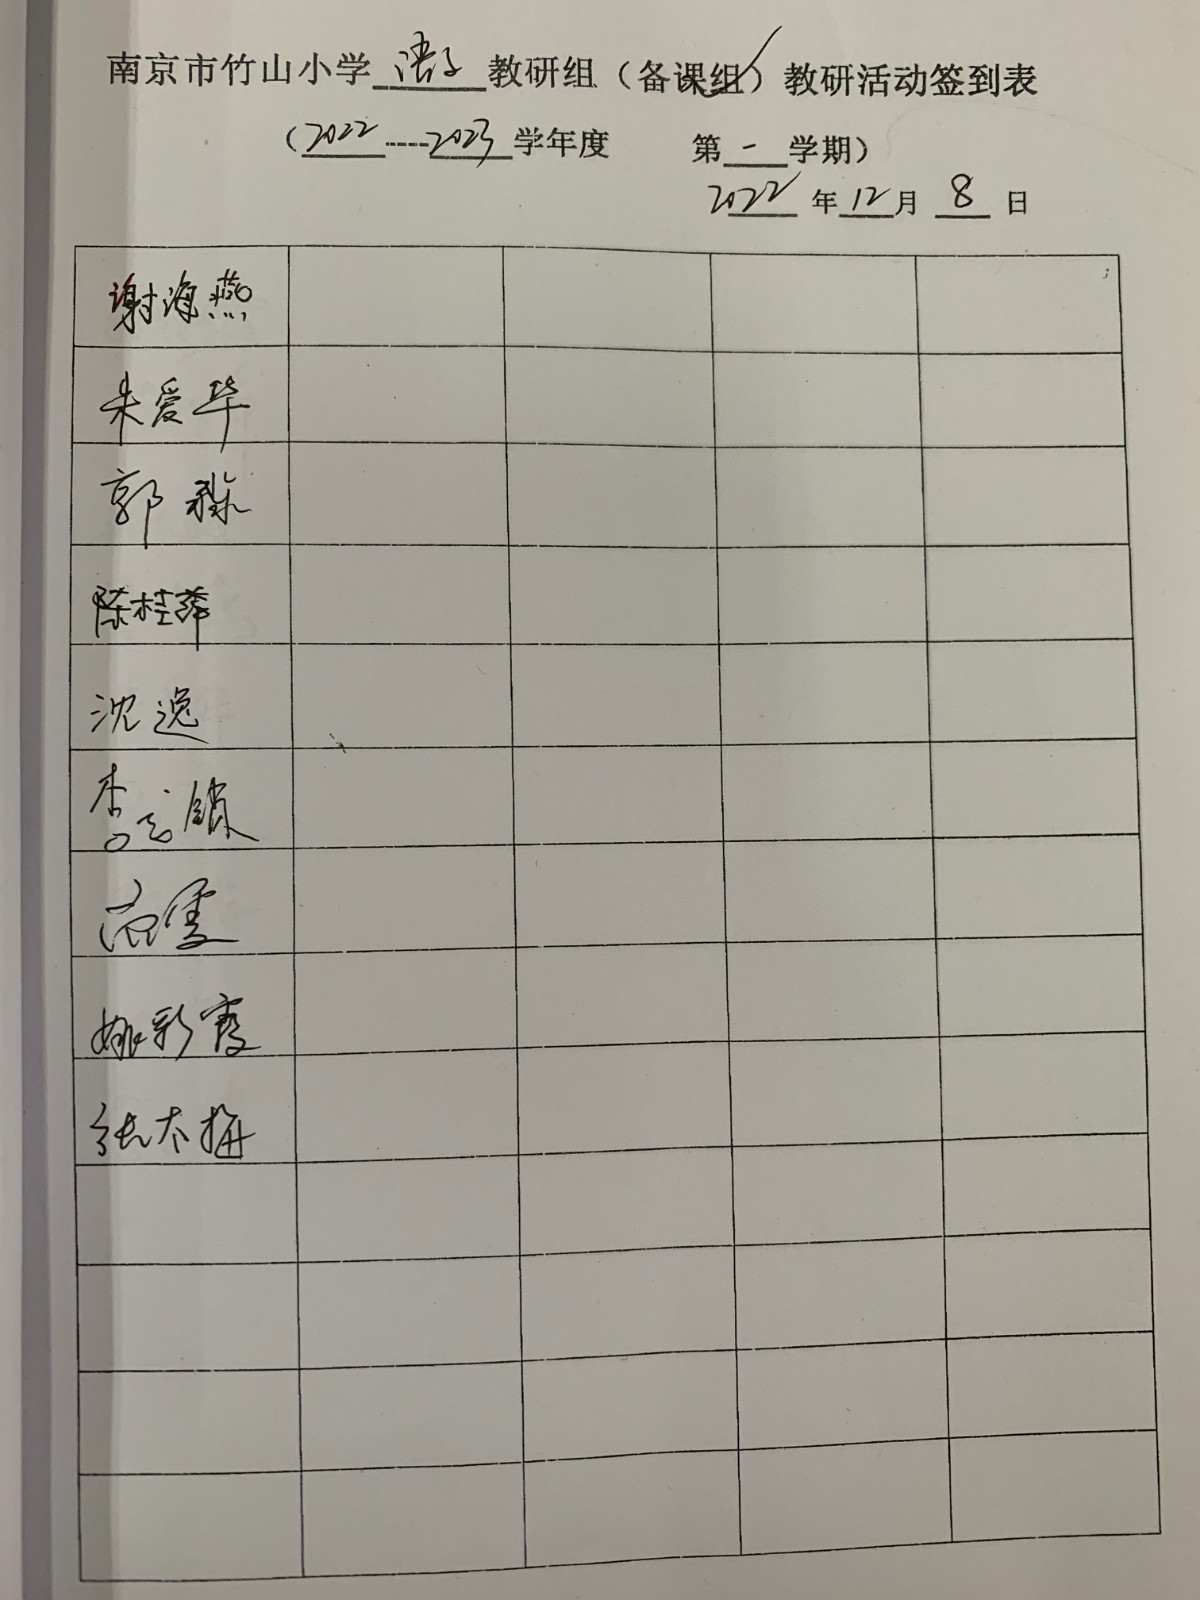 南京市竹山小学 语文 教研组（备课组）教研活动签到表
（2022----2023学年度 第一学期）
2022年12月8日
谢海燕
朱爱华
郭琛
陈桂萍
沈逸
李志锁
范雯
姚彩霞
张本梅